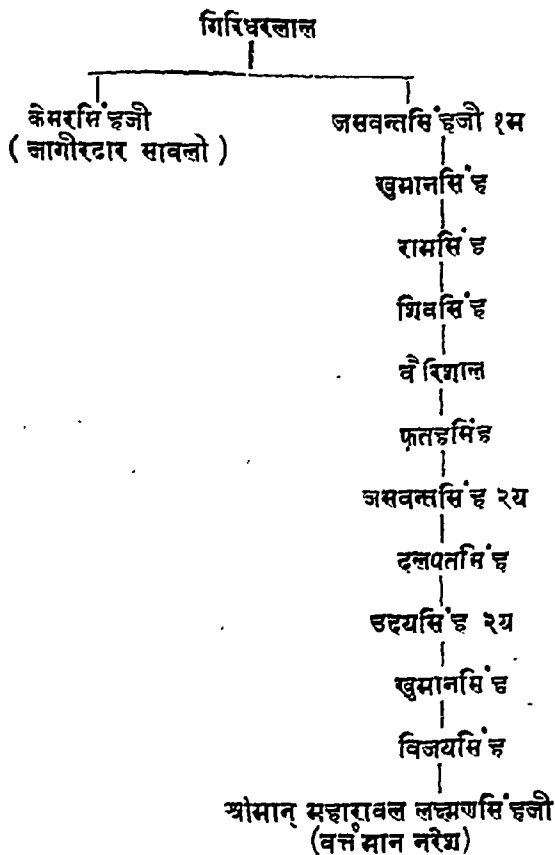 गिरिधरलाल
केसरसिंहजी
जसवन्तसिंहजी १म
(जागीरदार सावली)
खुमानसिंह
रामसिंह
शिवसिंह
वैरिशाल
फ़तहसिंह
जसवन्तसिंह २य
दलपतसिंह
उदयसिंह २य
खुमानसिंह
विजयसिंह
श्रीमान् महारावल लक्ष्मणसिंहजी
(वर्त्तमान नरेश)